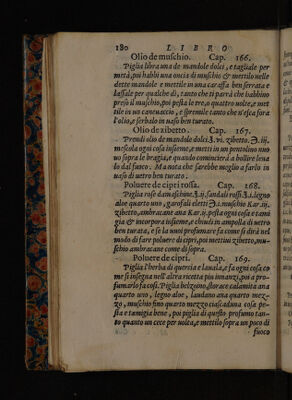 180 LIBRO
Olio de muschio. Cap. 166.
Piglia libra una de mandole dolci, e tagliale per
metà, poi habbi una oncia di muschio & mettilo nelle
dette mandole e mettile in una caraffa ben serrata e
lassale per qualche dì, tanto che ti parrà che habbino
preso il muschio, poi pesta le tre, o quattro volte, e met
tile in un canevaccio, e spremile tanto che n'esca fora
l'olio, e serbalo in vaso ben turato.
Olio de zibetto. Cap. 167.
Prendi olio de mandole dolci ℥. vi. zibetto. ℈. iij.
mescola ogni cosa insieme, e metti in un pentolino nuo
uo sopra le bragia, e quando comincierà a bollire leua
lo dal fuoco. Ma nota che sarebbe meglio a farlo in
uaso di uetro ben turato.
Poluere de cipri rossa. Cap. 168.
Piglia rose damaschine ℥. ij. sandali rossi ℥. i. legno
aloe quarto uno, garofali eletti ℈. i. muschio Kar. iij.
zibetto, ambracane ana Kar. ij. pesta ogni cosa e tami
gia & incorpora insieme, e chiudi in ampolla di uetro
ben turata, e se la uuoi profumare fa come si dirà nel
modo di fare poluere di cipri, poi mettini zibetto, mu-
schio ambracane come di sopra.
Poluere de cipri. Cap. 169.
Piglia l'herba di quercia e lauala, e fa ogni cosa co
me si insegna nell'altra ricetta più innanzi, poi a pro-
fumarlo fa così. Piglia belzoino, storace calamita ana
quarto uno, legno aloe, laudano ana quarto mez-
zo, muschio fino quarto mezzo ciascaduna cosa pe-
sta e tamigia bene, poi piglia di questo profumo tan-
to quanto un cece per uolta, e mettilo sopra un poco di
fuoco